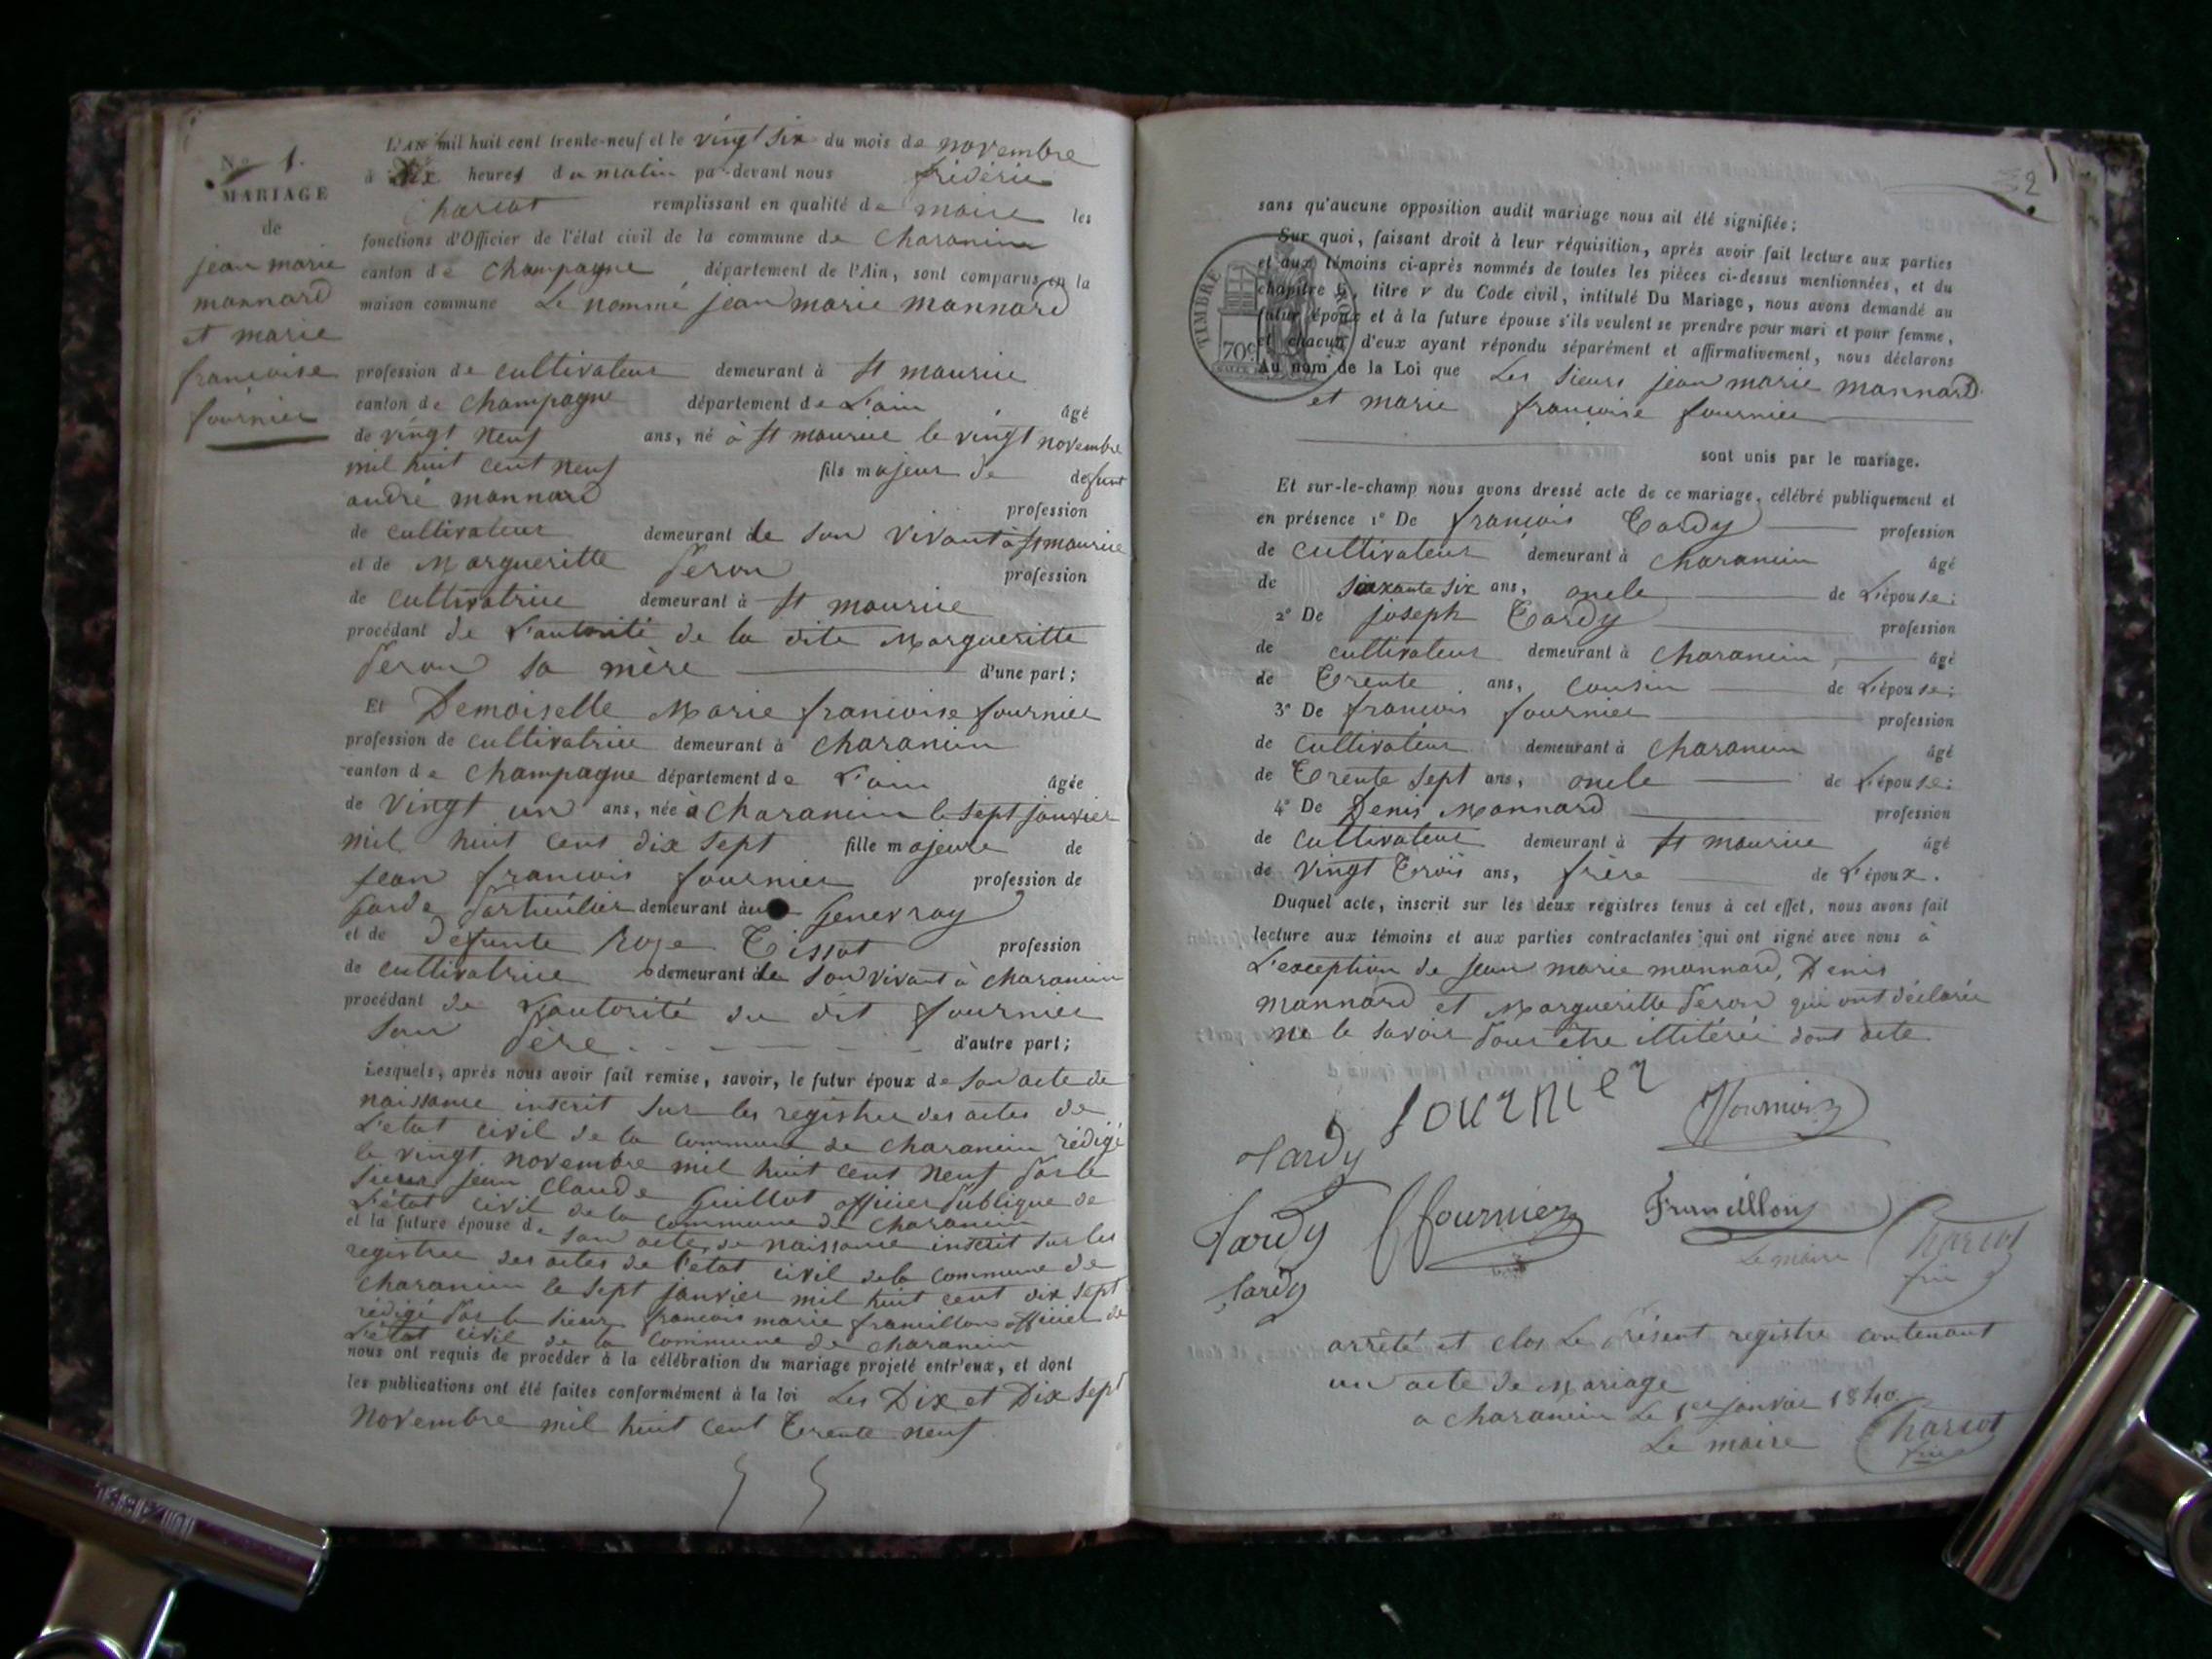 N° 1.
MARIAGE
de
jean marie
mannard
et marie
francoise
fournier
L'AN mil huit cent trente-neuf et le vingt six du mois de novembre
à Dix heures du matin par-devant nous fréderic
Charcot remplissant en qualité de maire les
fonctions d'Officier de l'état civil de la commune de Charancin
canton de Champagne département de l'Ain, sont comparus en la
maison commune Le nommé jean marie mannard
profession de cultivateur demeurant à St maurice
canton de Champagne département de L'ain âgé
de vingt neuf ans, né à St maurice le vingt novembre
mil huit cent neuf fils majeur de defunt
andré mannard profession
de cultivateur demeurant de son vivant à St maurice
et de Margueritte Peron profession
de cultivatrice demeurant à St maurice
procédant de L'autorité de la dite Margueritte
Peron sa mère d'une part;
Et Demoiselle Marie francoise fournier
profession de cultivatrice demeurant à Charancin
canton de Champagne département de L'ain âgée
de vingt un ans, née à Charancin le sept janvier
mil huit cent dix sept fille majeure de
jean francois fournier profession de
garde particulier demeurant au Genevray
et de défunte Rose Tissot profession
de cultivatrice demeurant de son vivant à charancin
procédant de L'autorité du dit fournier
son père d'autre part;
Lesquels, après nous avoir fait remise, savoir, le futur époux de son acte de
naissance inscrit sur les registre des actes de
L'etat civil de la commune de Charancin rédigé
le vingt novembre mil huit cent neuf par le
sieur jean Claude Guillot officier publique de
L'état civil de la commune de Charancin
et la future épouse de son acte de naissance inscrit sur les
registre des actes de l'etat civil de la commune de
Charancin le sept janvier mil huit cent dix sept
rédigé par le sieur francois marie francillon officier de
L'état civil de la commune de charancin
nous ont requis de procéder à la célébration du mariage projeté entr'eux, et dont
les publications ont été faites conformément à la loi Les Dix et Dix sept
Novembre mil huit cent Trente neuf
2
sans qu'aucune opposition audit mariage nous ait été signifiée;
Sur quoi, faisant droit à leur réquisition, après avoir fait lecture aux parties
et aux témoins ci-après nommés de toutes les pièces ci-dessus mentionnées, et du
chapitre 6, titre v du Code civil, intitulé Du Mariage, nous avons demandé au
futur époux et à la future épouse s'ils veulent se prendre pour mari et pour femme,
et chacun d'eux ayant répondu séparément et affirmativement, nous déclarons
Au nom de la Loi que Les sieurs jean marie mannard
et marie francoise fournier
TIMBRE ROYAL
70c
sont unis par le mariage.
Et sur-le-champ nous avons dressé acte de ce mariage, célébré publiquement et
en présence 1° De francois Tardy profession
de cultivateur demeurant à Charancin âgé
de soixante six ans, oncle de L'épouse;
2° De joseph Tardy profession
de cultivateur demeurant à Charancin âgé
de Trente ans, cousin de L'épouse;
3° De francois fournier profession
de cultivateur demeurant à Charancin âgé
de Trente sept ans, oncle de L'épouse;
4° De Denis Mannard profession
de cultivateur demeurant à St maurice âgé
de vingt Trois ans, frère de L'époux.
Duquel acte, inscrit sur les deux registres tenus à cet effet, nous avons fait
lecture aux témoins et aux parties contractantes qui ont signé avec nous à
L'exception de jean marie mannard, Denis
mannard et Margueritte Peron qui ont déclarér
ne le savoir pour être illitéréé dont acte
fournier fournier
Tardy
Tardy fournier Francillon
Le maire Charcot
Tardy
arrêté et clos Le présent registre contenant
un acte de Mariage
a charancin Le 1er janvier 1840
Le maire Charcot